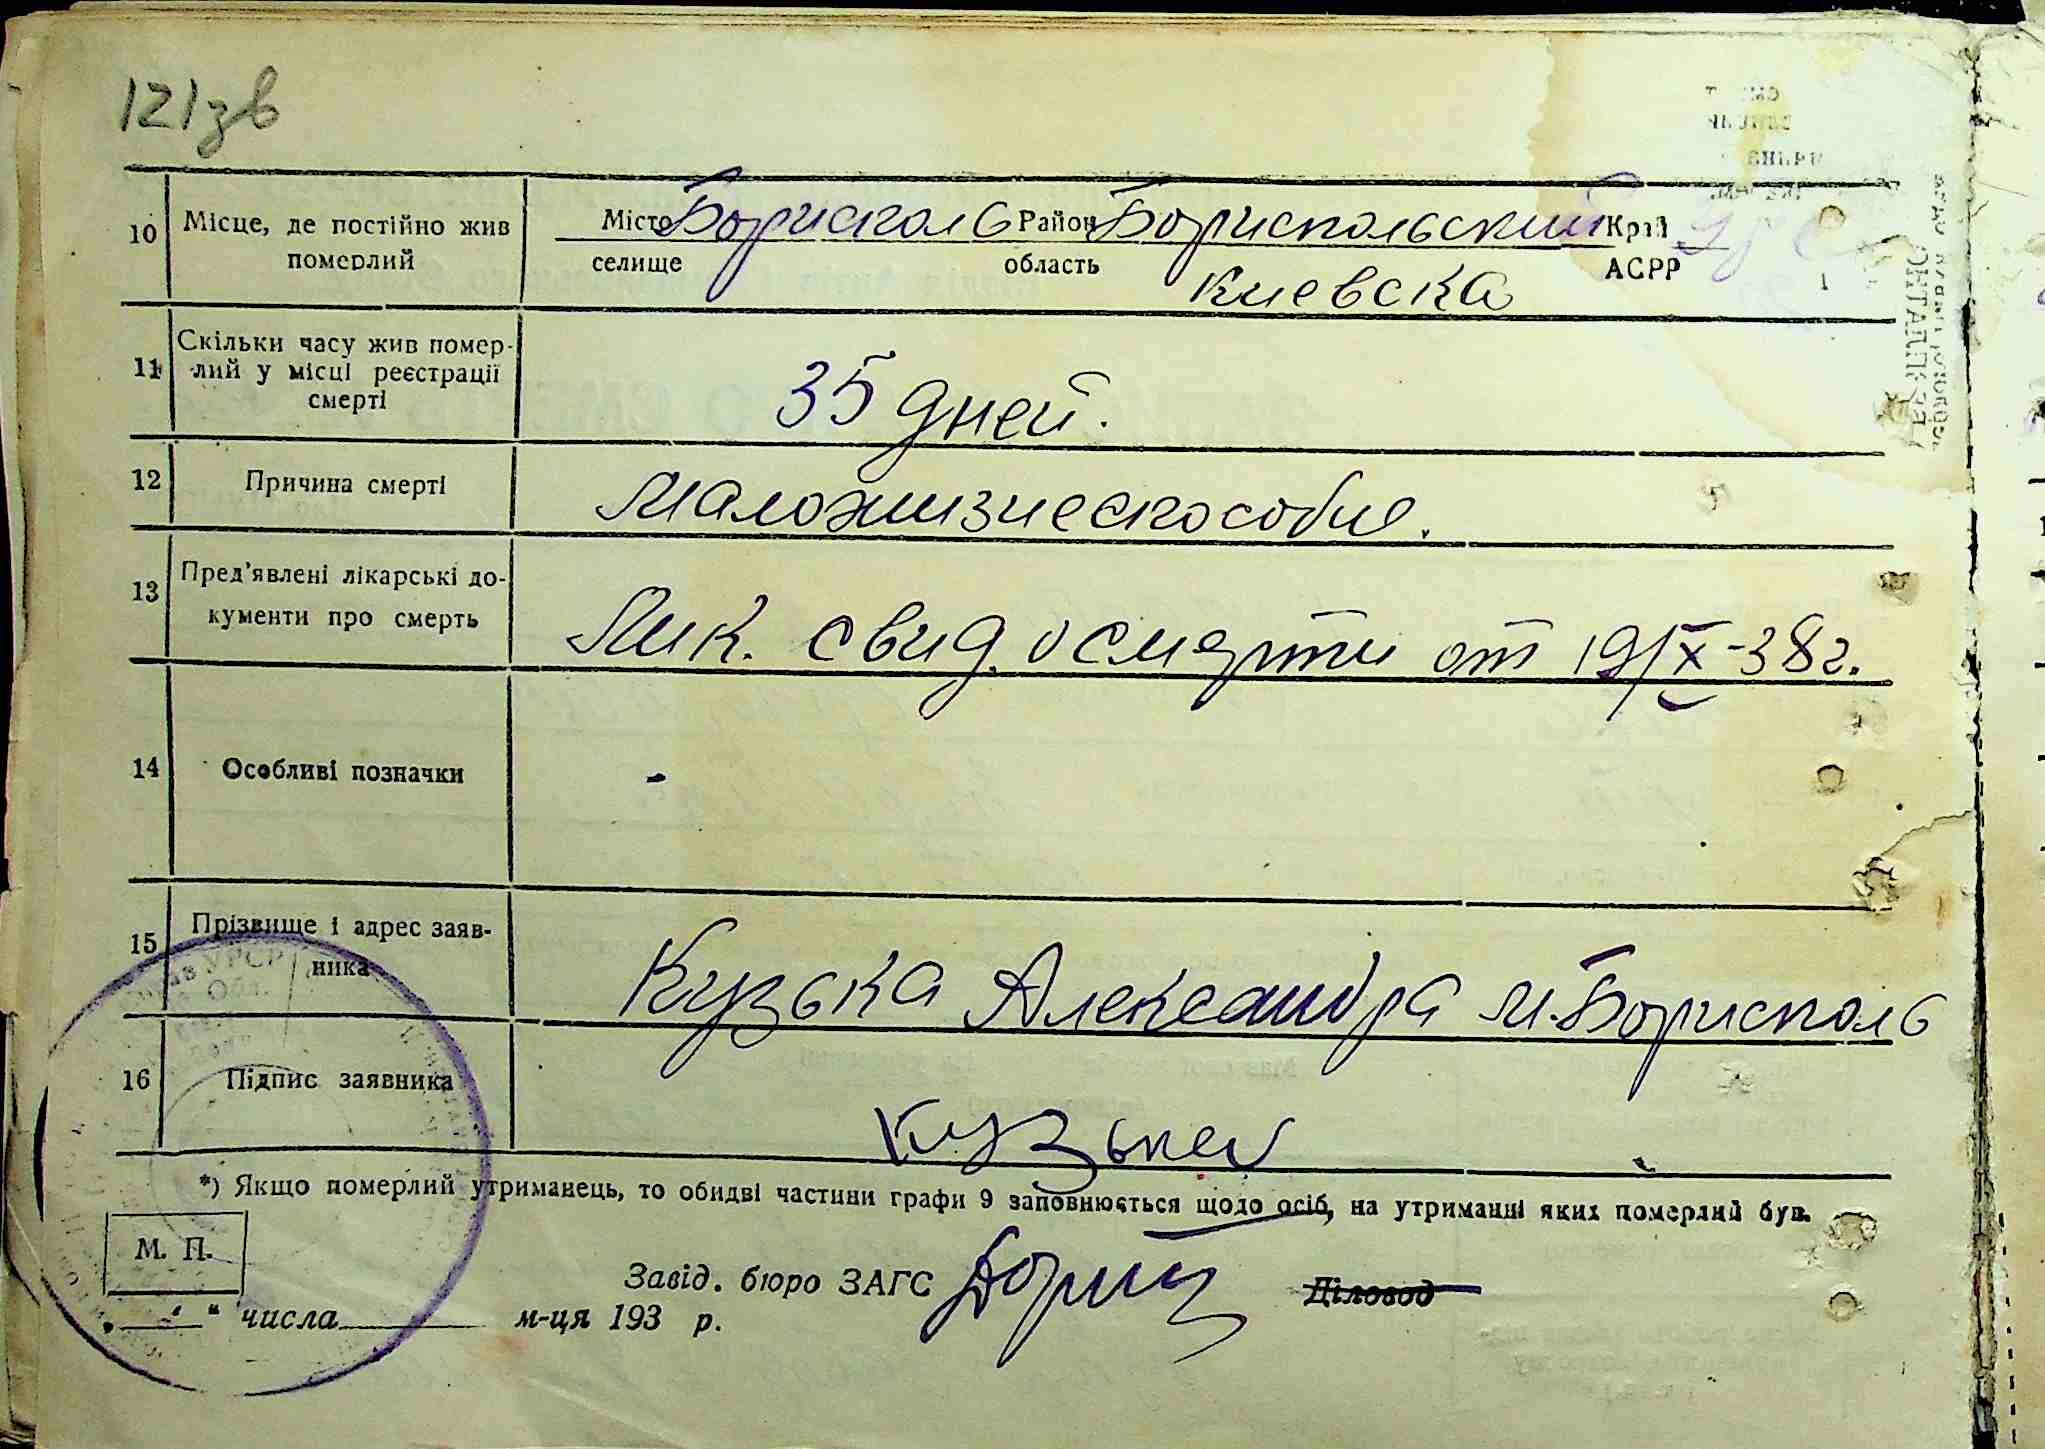 121зв
10 Місце, де постійно жив померлий
Місто Борисполь Район Бориспольский Край
селище область Киевска АСРР
11 Скільки часу жив помер-
лий у місці реєстрації
смерті
35 дней.
12 Причина смерті
Маложизнеспособие.
13 Пред'явлені лікарські до-
кументи про смерть
Лик. свид. о смерти от 19/IX-38г.
14 Особливі позначки
-
15 Прізвище і адрес заяв-
ника
Кузька Александра м. Борисполь
16 Підпис заявника
Кузька
*) Якщо померлий утриманець, то обидві частини графи 9 заповнюється щодо осіб, на утриманні яких померлий був.
М. П.
Завід. бюро ЗАГС Діловод
„ “ числа м-ця 193 р.